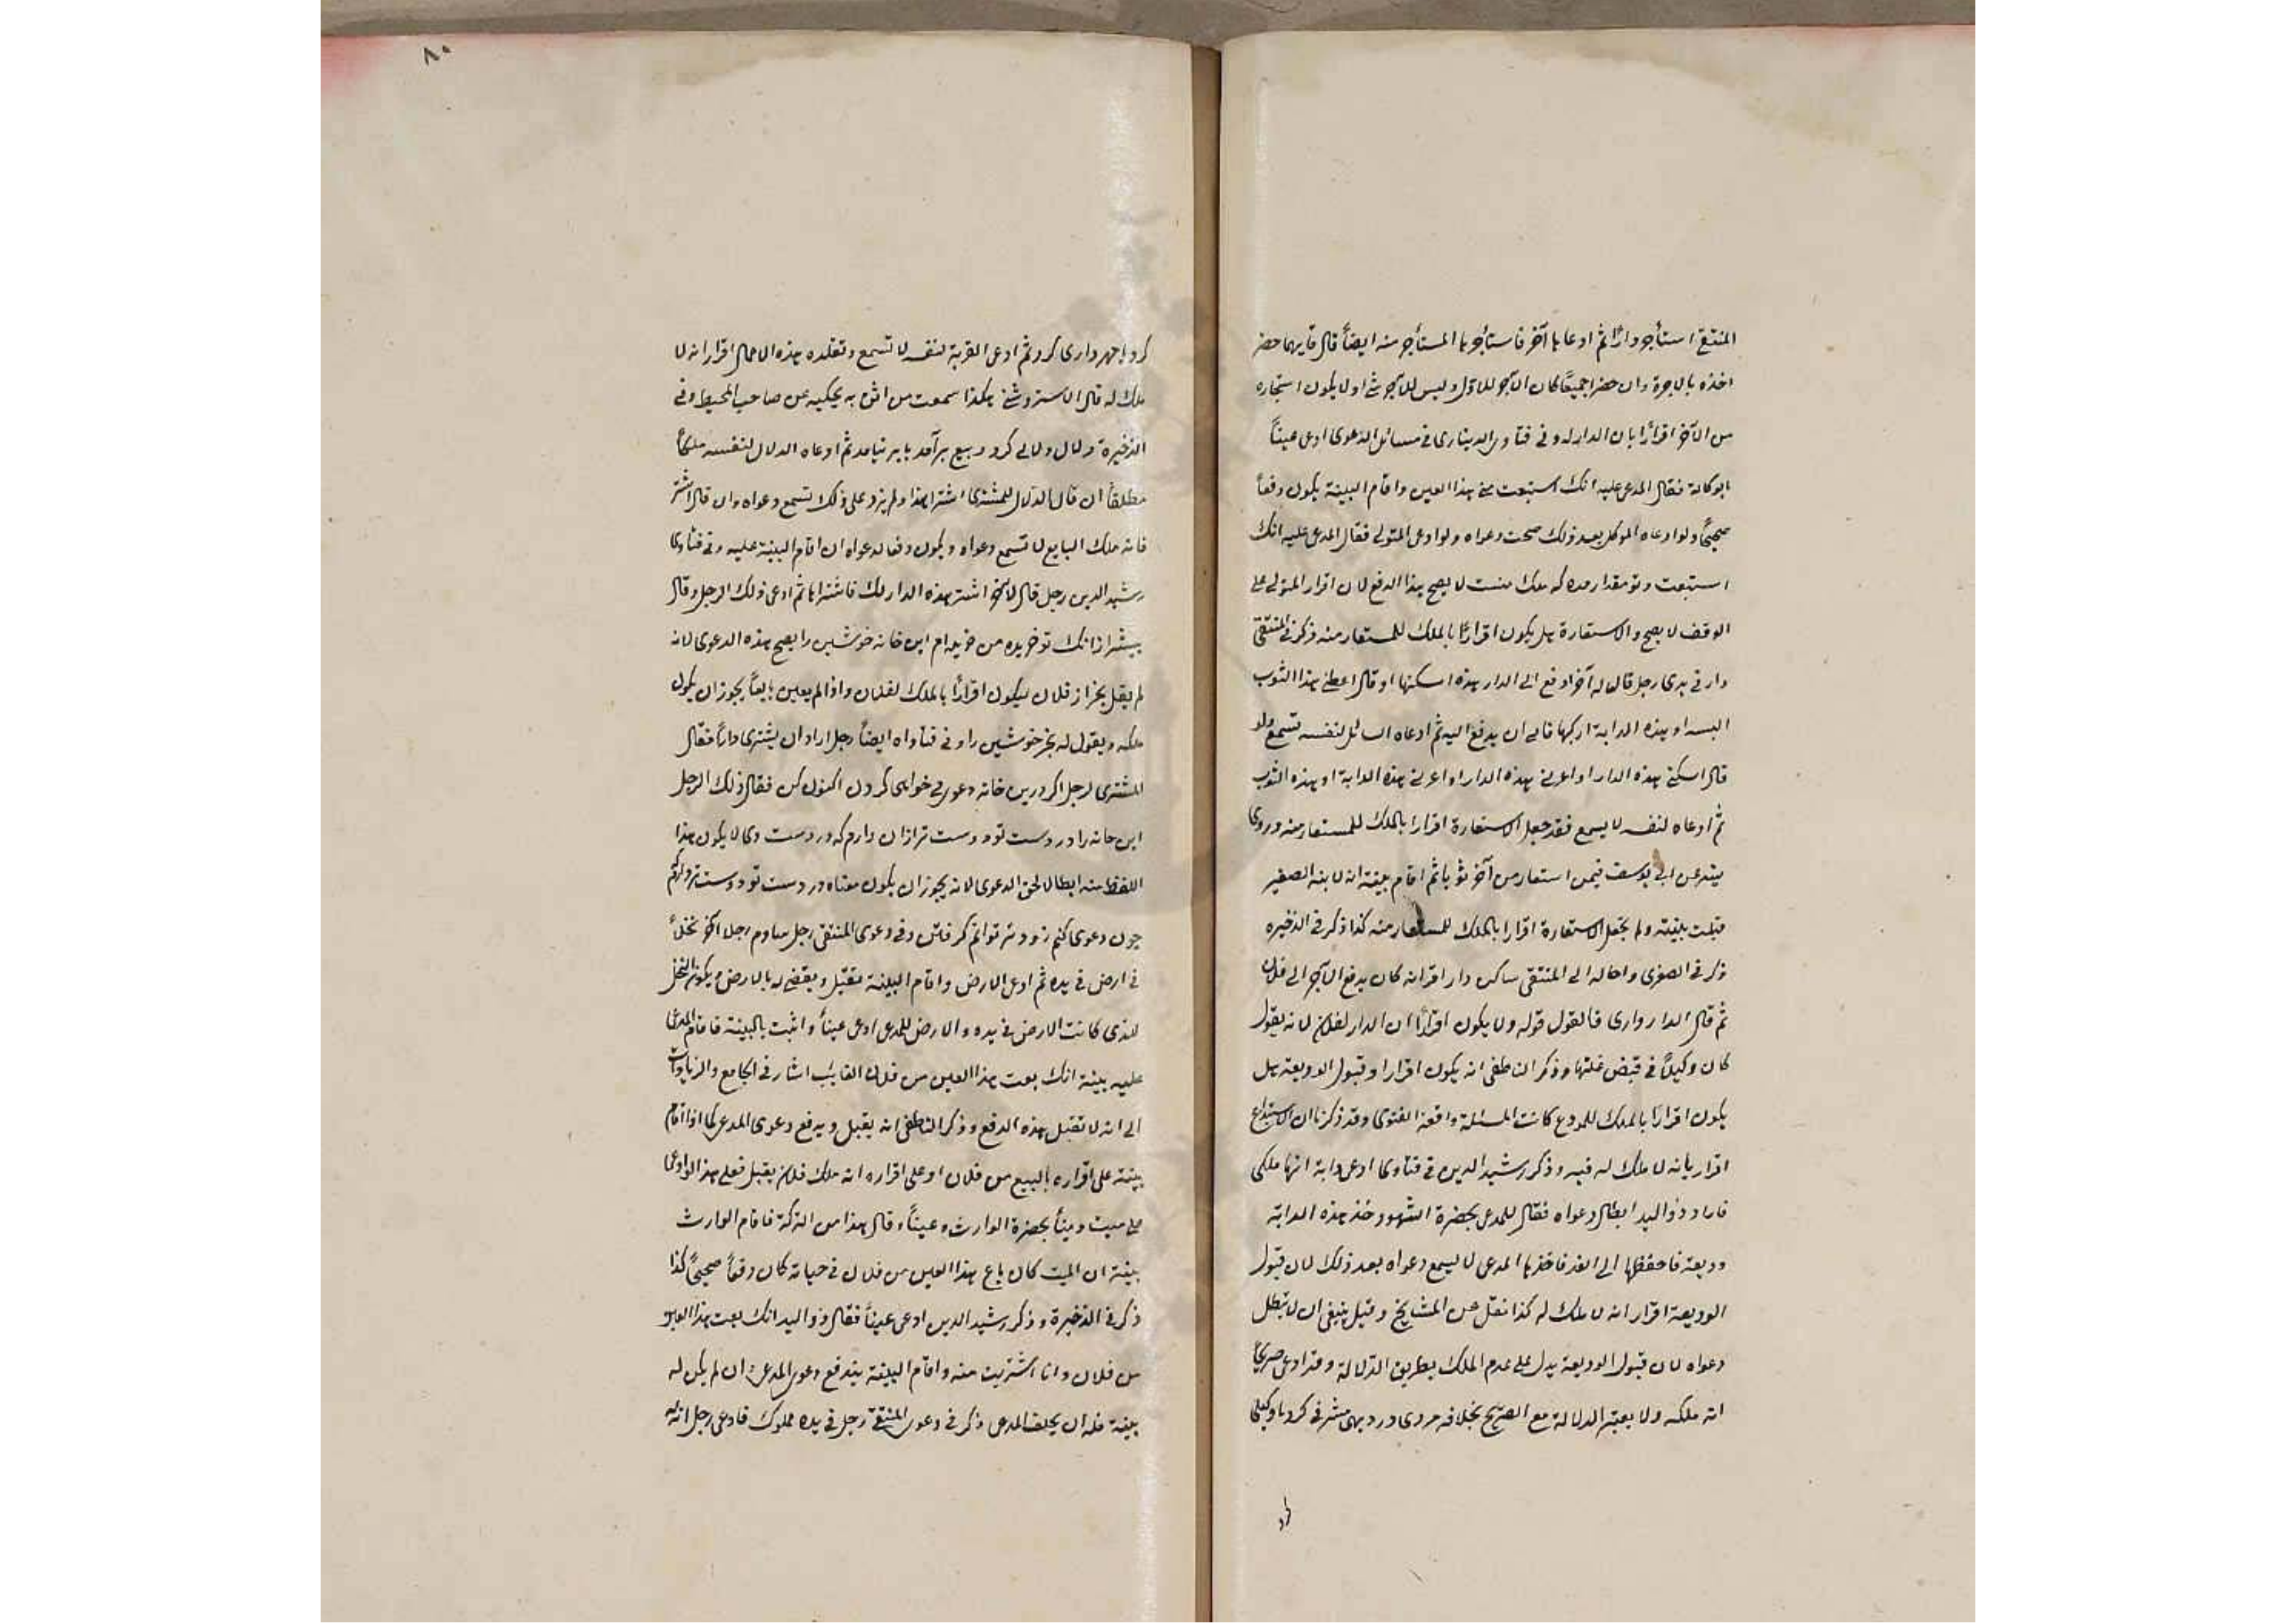 المنتقى استأجر دارًا ثم ادعاها آخر فاستأجرها المستأجر منه ايضاً قال فايهما حضر
اخذه بالاجرة وان حضرا جميعًا كان الآجر للاول وليس للآجر شئ اولا يكون استيجاره
من الآخر اقرارًا بان الدار له وفي فتاوى الديناري في مسائل الدعوى ادعى عيناً
بوكالة فقال المدعى عليه انك استبعت مني هذا العين واقام البينة يكون دفعاً
صحيحًا ولو ادعاه الموكل بعد ذلك صحت دعواه ولو ادعى المتولي فقال المدعى عليه انك
استبعت وتو مقدار مده كه ملك منست لا يصح هذا الدفع لان اقرار المتولي على
الوقف لا يصح والاستعارة هل يكون اقرارًا بالملك للمستعار منه ذكر في المنتقى
دار في يدي رجل قال له آخر ادفع الي الدار هذه اسكنها او قال اعطني هذا الثوب
البسه او هذه الدابة اركبها فابى ان يدفع اليه ثم ادعاه السائل لنفسه تسمع ولو
قال اسكني هذه الدار او اعرني هذه الدار او اعرني هذه الدابة او هذه الثوب
ثم ادعاه لنفسه لا يسمع فقد جعل الاستعارة اقرارا بالملك للمستعار منه وروى
عن ابي يوسف فيمن استعار من آخر ثوبا ثم اقام بينة انه لابنه الصغير
قبلت بينته ولم يجعل الاستعارة اقرارا بالملك للمستعار منه كذا ذكر في الذخيره
ذكر في الصغرى واحاله الى المنتقى ساكن دار اقر انه كان يدفع الآجر الى فلان
ثم قال الدار داري فالقول قوله ولا يكون اقرارًا ان الدار لفلان لانه يقول
كان وكيلاً في قبض غلتها وذكر الناطفي انه يكون اقرارا وقبول الوديعة هل
يكون اقرارًا بالملك للمودع كانت المسئلة واقعة الفتوى وقد ذكرنا ان الاستيداع
اقرار بانه لا ملك له فيه وذكر رشيد الدين في فتاوى ادعى دابة انها ملكي
فاراد ذو اليد ابطال دعواه فقال للمدعي بحضرة الشهود خذ هذه الدابة
وديعة فاحفظها الى الغد فاخذها المدعى لا يسمع دعواه بعد ذلك لان قبول
الوديعة اقرار انه لا ملك له كذا نقل عن المشايخ وقيل ينبغي ان لا تبطل
دعواه لان قبول الوديعة يدل على عدم الملك بطريق الدلالة وقد ادعى صريحًا
انه ملكه ولا يعتبر الدلالة مع الصريح بخلافه مردى در ديهى مشرفي كرد با وكيلي
كرد
٨٠
كرد با مهر داري كرد ثم ادعى القرية لنفسه لا تسمع وتقلده هذه الاعمال اقرار انه لا
ملك له قال الاستروشني هكذا سمعت من اثق به يحكيه عن صاحب المحيط وفي
الذخيرة دلال دلالي كرد وبيع برآمد يا بر نيامد ثم ادعاه الدلال لنفسه ملكًا
مطلقاً ان قال الدلال للمشتري اشتر هذا ولم يزد على ذلك تسمع دعواه وان قال اشتر
فانه ملك البايع لا تسمع دعواه ويكون دفعا لدعواه ان اقام البينة عليه وفي فتاوى
رشيد الدين رجل قال لآخر اشتر هذه الدار لك فاشتراها ثم ادعى ذلك الرجل وقال
بيشتر از انك تو خريده من خريده ام اين خانه خوشين را يصح هذه الدعوى لانه
لم يقل بخر از فلان ليكون اقرارًا بالملك لفلان واذا لم يعين بايعًا يجوز ان يكون
ملكه ويقول له بخر خوشين را وفي فتاواه ايضاً رجل اراد ان يشتري دارًا فقال
المشتري لرجل اكر درين خانه دعوى خواهى كردن اكنون كن فقال ذلك الرجل
اين خانه را در دست تو دوست تر ازان دارم كه در دست وى لا يكون هذا
اللفظ منه ابطالا لحق الدعوى لانه يجوز ان يكون معناه در دست تو دوست تر دارم
چون دعوى كنم زودتر توانم گرفتن وفي دعوى المنتقى رجل ساوم رجلا آخر نخلاً
في ارض في يده ثم ادعى الارض واقام البينة تقبل ويقضى له بالارض ويكون النخل
للذى كانت الارض في يده والارض للمدعى ادعى عيناً واثبت بالبينة فاقام المدعى
عليه بينة انك بعت هذا العين من فلان الغائب اشار في الجامع والزيادات
الى انه لا تقبل هذه الدفع وذكر الناطفى انه يقبل ويدفع دعوى المدعى كما اذا اقام
بينة على اقراره بالبيع من فلان او على اقراره انه ملك فلان يقبل فعلى هذا لو ادعى
على ميت دينًا بحضرة الوارث وعينًا وقال هذا من التركة فاقام الوارث
بينة ان الميت كان باع هذا العين من فلان في حياته كان دفعاً صحيحًا كذا
ذكر في الذخيرة وذكر رشيد الدين ادعى عيناً فقال ذو اليد انك بعت هذا العين
من فلان وانا اشتريت منه واقام البينة يندفع دعوى المدعى ان لم يكن له
بينة فله ان يحلف المدعى ذكر في دعوى المنتقى رجل في يده مملوك فادعى رجل انه له